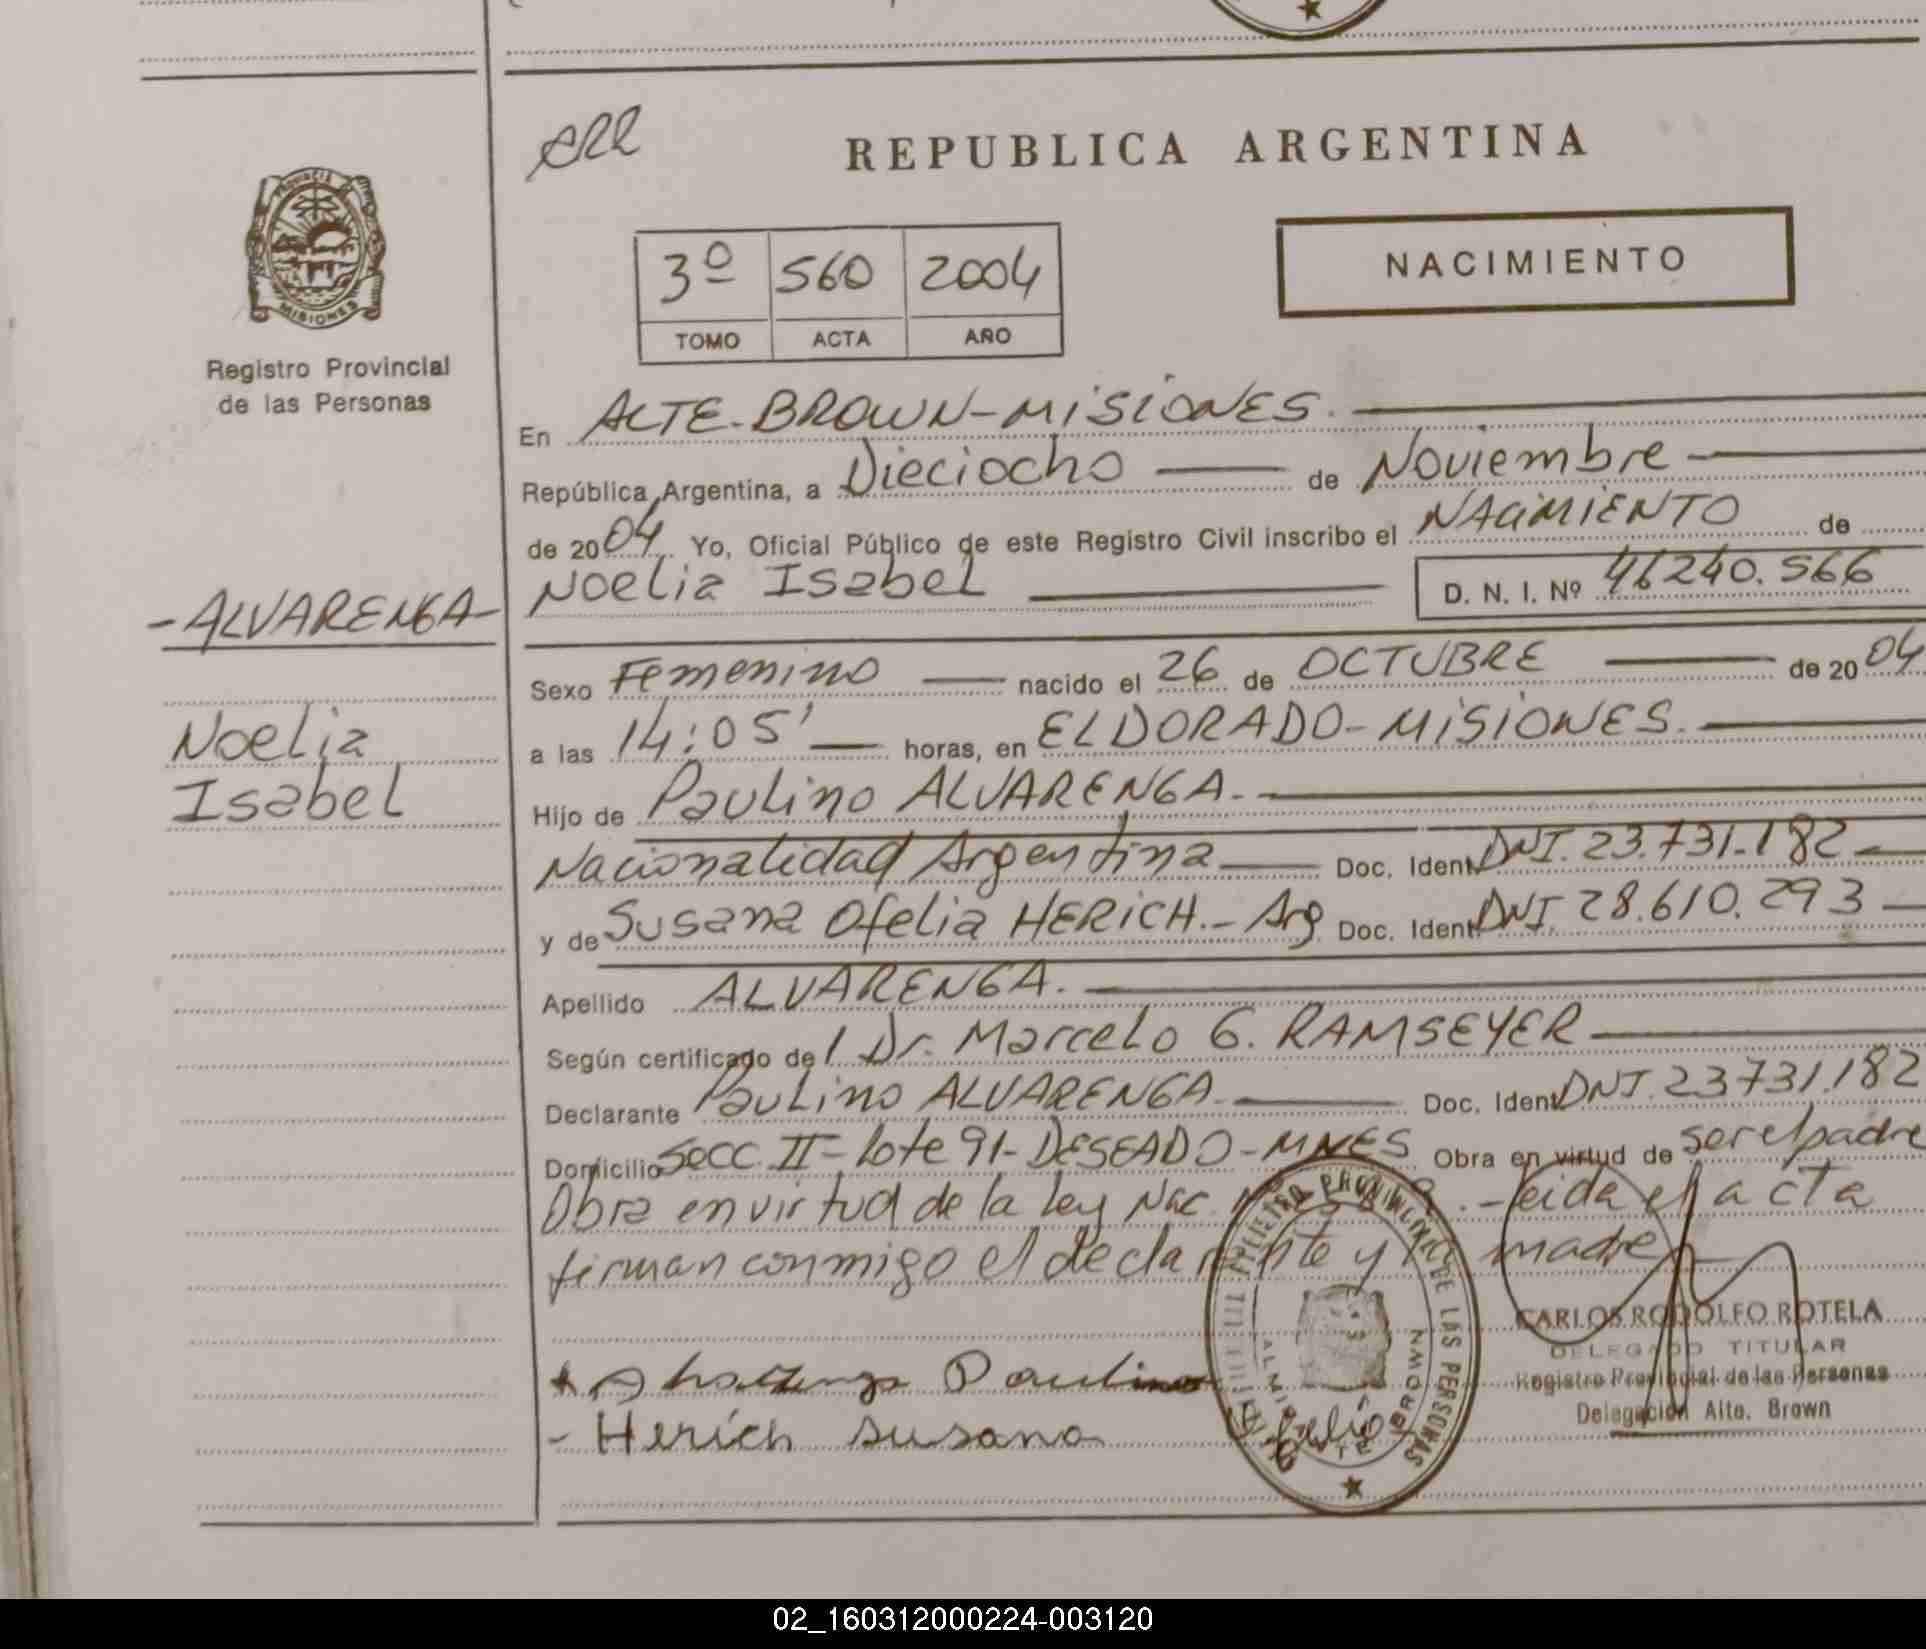 ERR
REPUBLICA ARGENTINA
PROVINCIA DE MISIONES
Registro Provincial
de las Personas
3º 560 2004
TOMO ACTA AÑO
NACIMIENTO
En ALTE. BROWN-MISIONES.
República Argentina, a Dieciocho de Noviembre
de 2004 Yo, Oficial Público de este Registro Civil inscribo el NACIMIENTO de
Noelia Isabel D. N. I. Nº 46240.566
-ALVARENGA-
Noelia
Isabel
Sexo Femenino nacido el 26 de OCTUBRE de 2004
a las 14:05' horas, en ELDORADO-MISIONES.
Hijo de Paulino ALVARENGA.-
Nacionalidad Argentina Doc. Ident. DNI. 23.731.182
y de Susana Ofelia HERICH.- Arg Doc. Ident. DNI. 28.610.293
Apellido ALVARENGA.
Según certificado de l Dr. Marcelo G. RAMSEYER
Declarante Paulino ALVARENGA Doc. Ident. DNI. 23731.182
Domicilio Secc. II-Lote 91-DESEADO-MNES Obra en virtud de ser el padre
Obra en virtud de la ley Nac. leida el acta
firman conmigo el declarante y la madre
Paulino
- Herich Susana Ofelia
REGISTRO PROVINCIAL DE LAS PERSONAS
ALMIRANTE BROWN
CARLOS RODOLFO ROTELA
DELEGADO TITULAR
Registro Provincial de las Personas
Delegación Alte. Brown
02_160312000224-003120